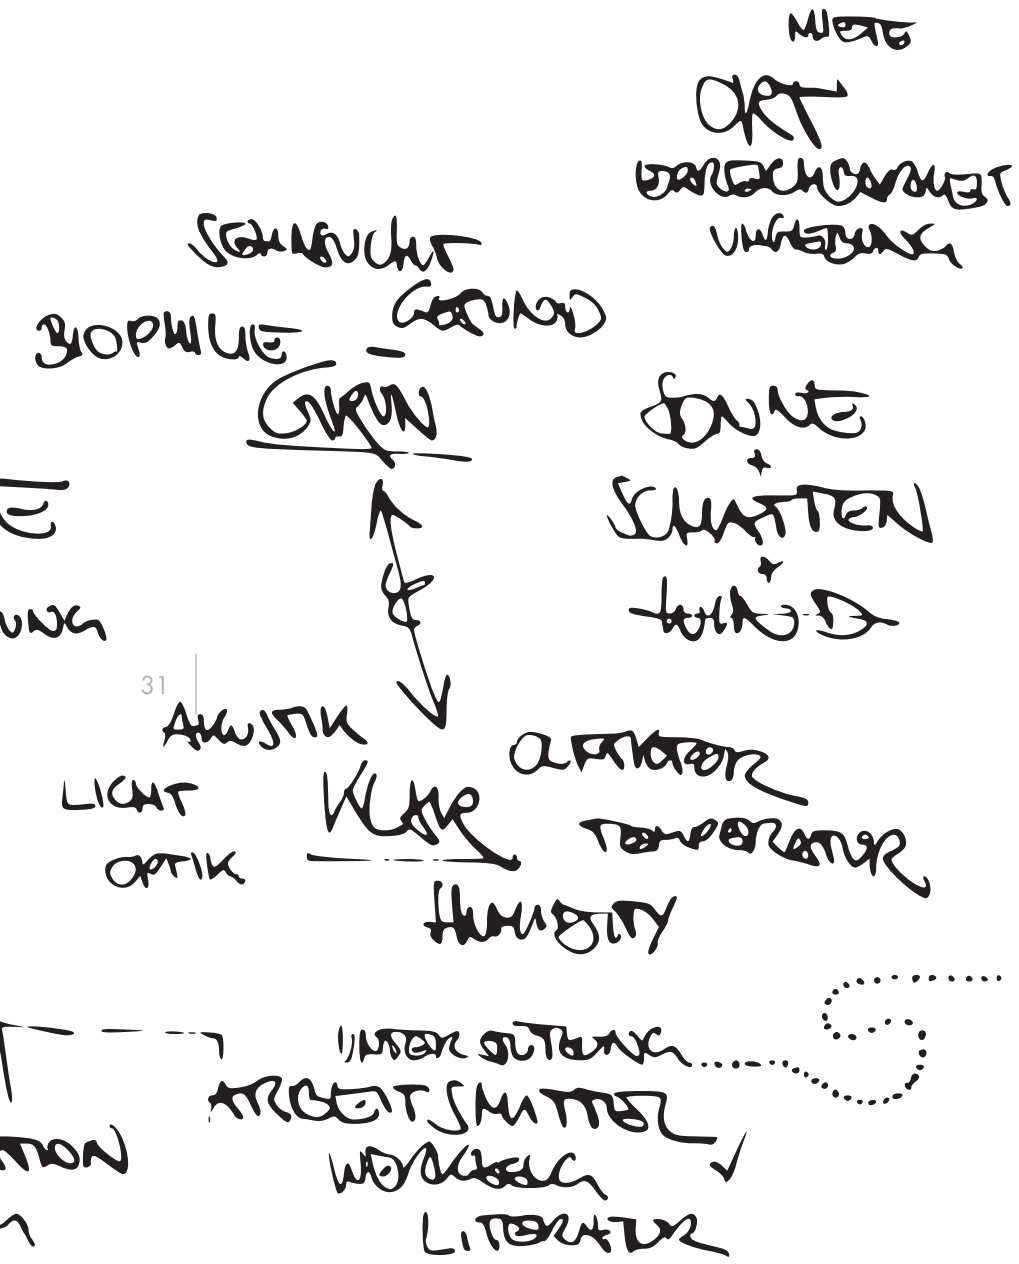 MIETE
ORT
ERREICHBARKEIT
UMGEBUNG
SEHNSUCHT
GESUND
BIOPHILIE
GRÜN
SONNE
+
SCHATTEN
+
WIND
E
UNG
&
31
AKUSTIK
OLFAKTOR
LICHT
KLAR
TEMPERATUR
OPTIK
HUMIDITY
UNTERSTÜTZUNG
ARBEITSMITTEL
TION
WERKZEUG
LITERATUR